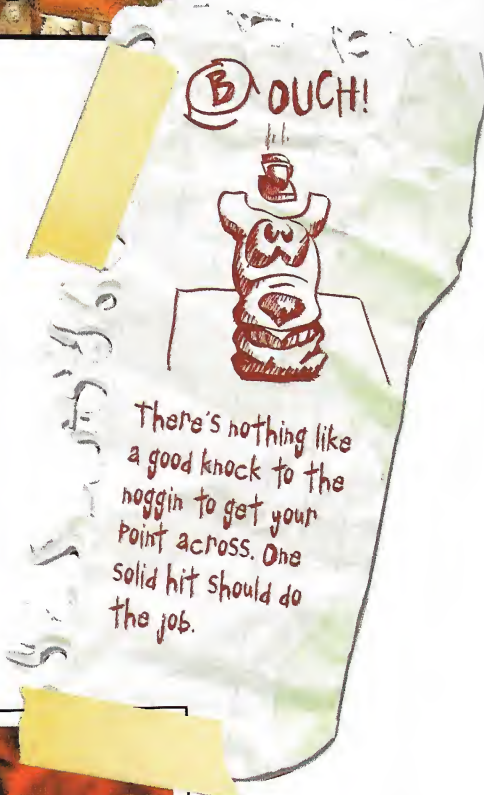 B OUCH!
There's nothing like
a good knock to the
noggin to get your
point across. One
solid hit should do
the job.